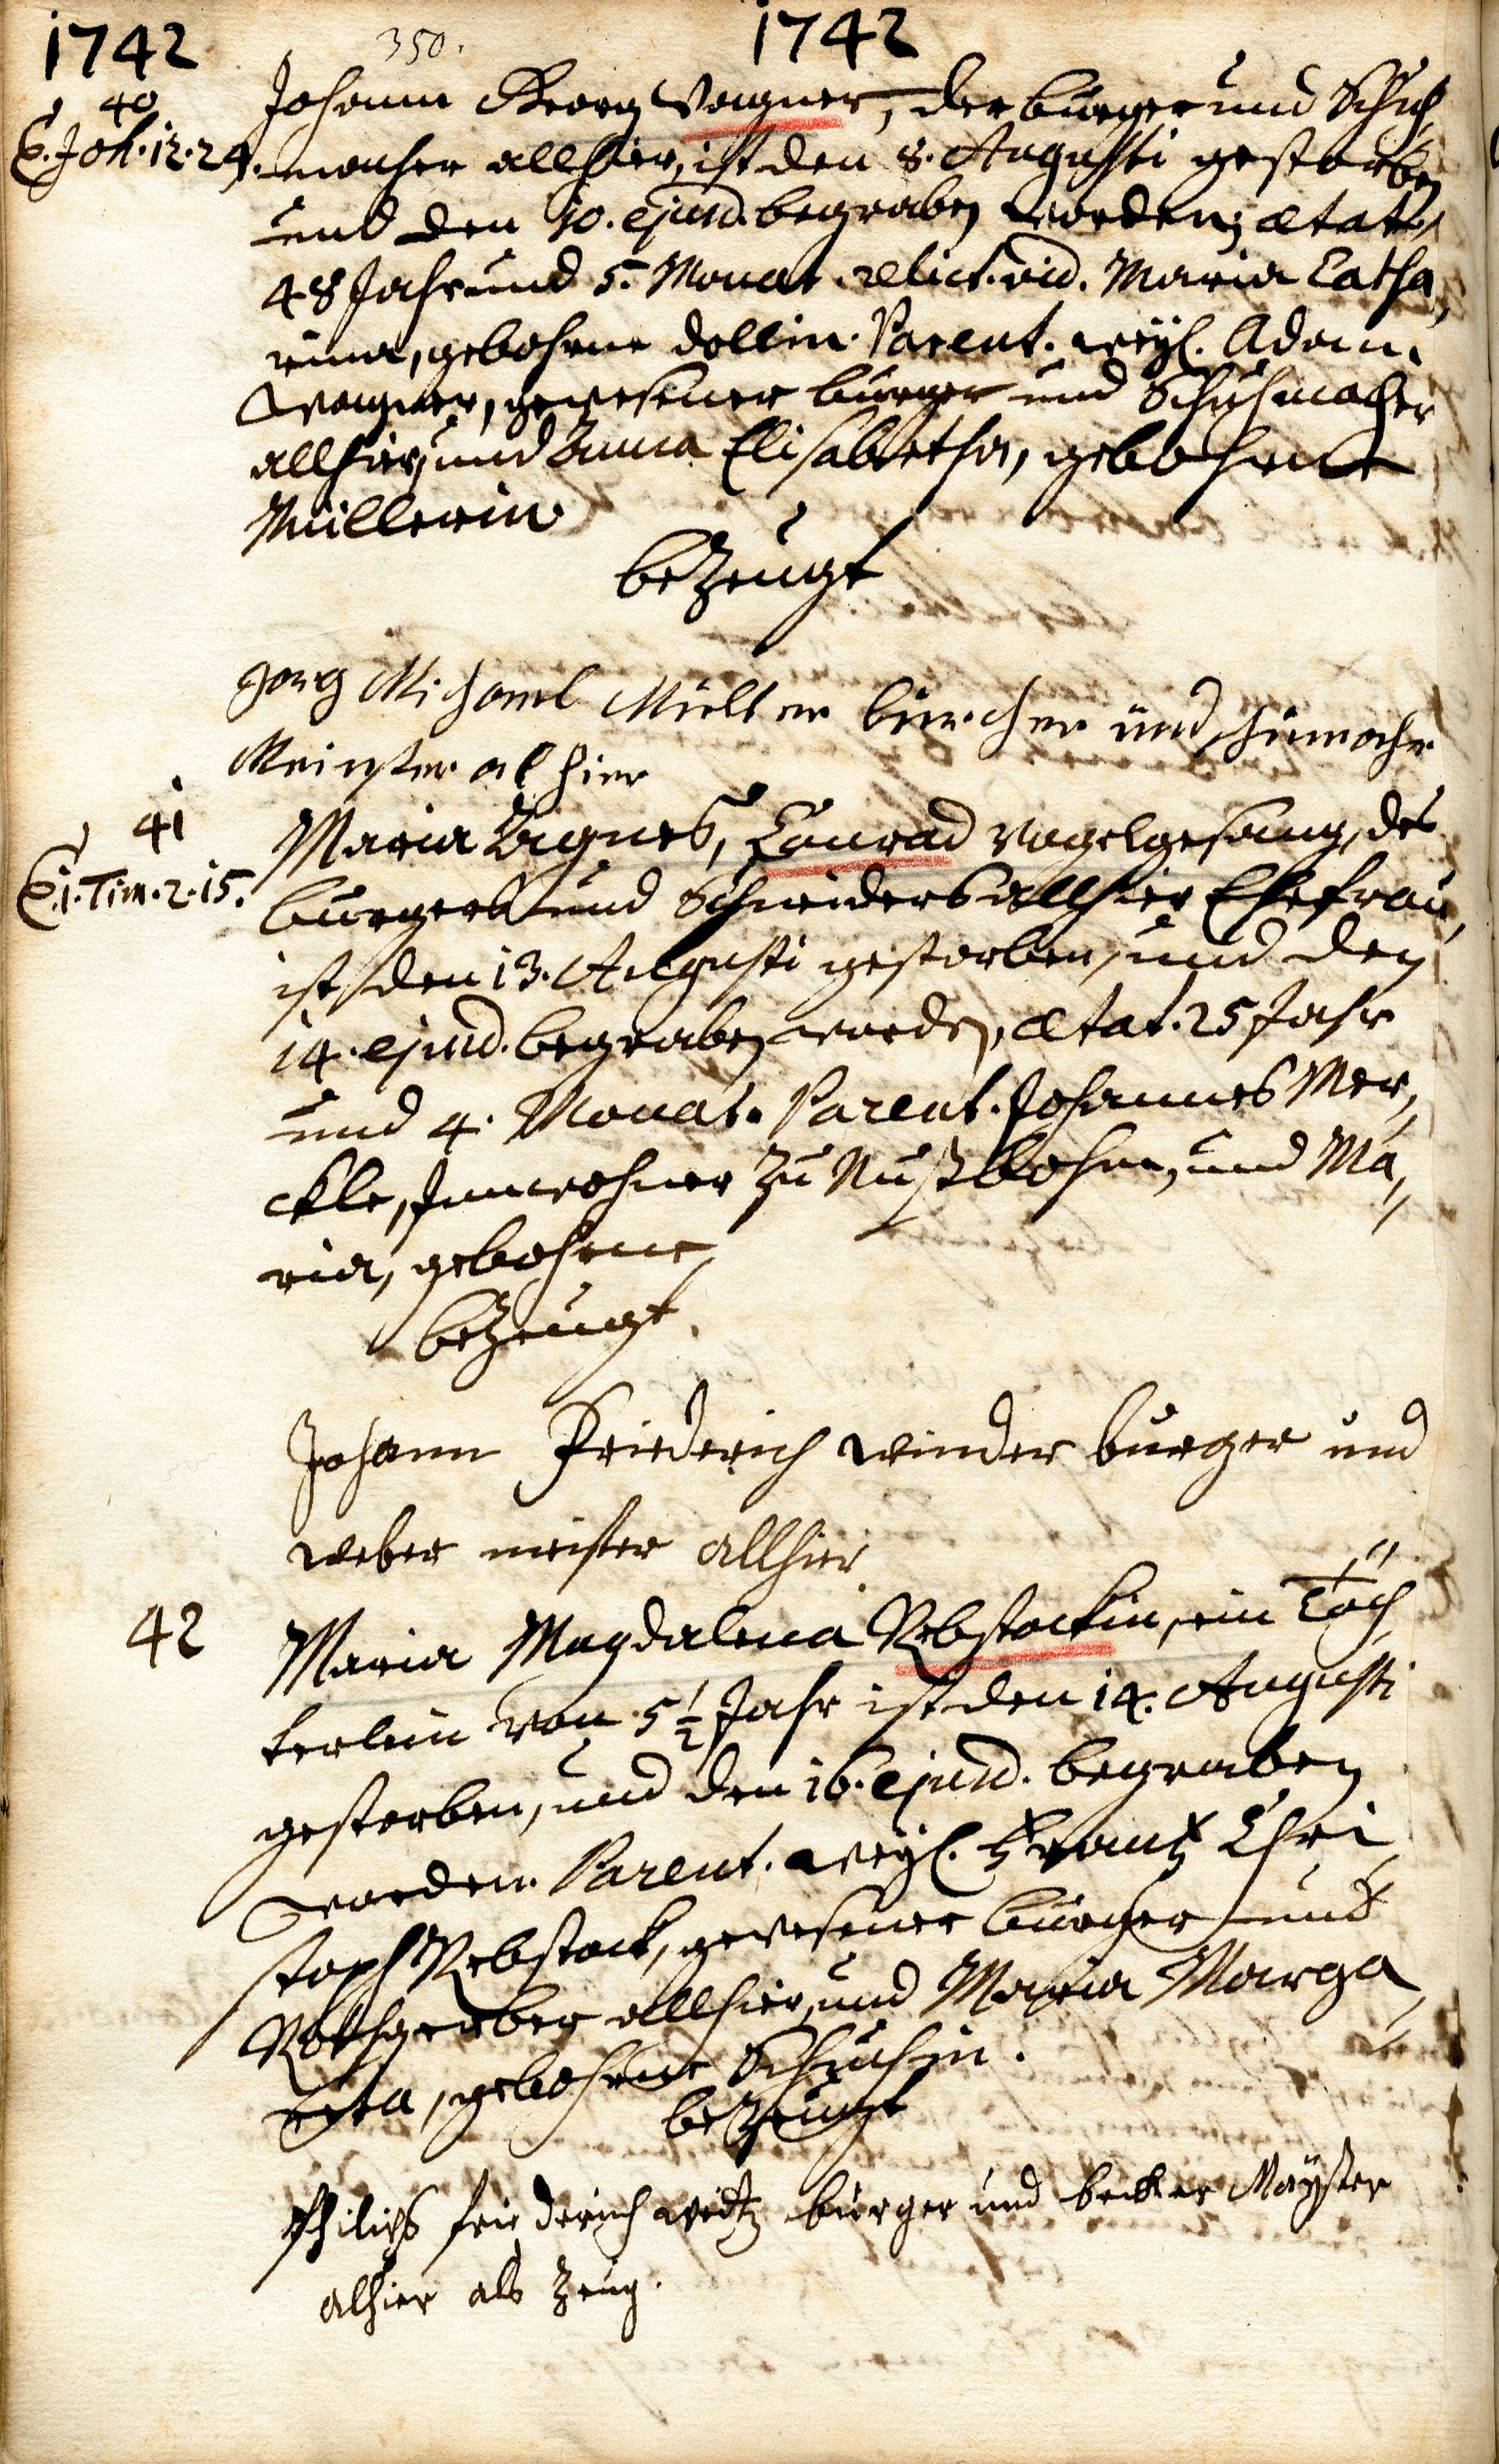 1742 350. 1742
40
C. Joh. 12. 24.
Johann Georg Wagner, der burger und Schuh
macher allhier, ist den 8. Augusti gestorben
und den 10. ejusd. begraben worden, ætat.
48 Jahr und 5. Monat. relict. vid. Maria Catha,
rina, gebohrne Dollin. Parent. weyl. Adam
Wagner, gewesener burger und Schuhmacher
allhier, und Anna Elisabetha, gebohrne
Müllerin
bezeugt
Jorg Michael Müller bürcher und schumachr
Meinster alhier
41
C. 1. Tim. 2. 15.
Maria Agnes, Conrad Vogelgesang, des
burgers und Schneiders allhier Ehefrau,
ist den 13. Augusti gestorben, und den
14. ejusd. begraben worden, ætat. 25 Jahr
und 4. Monat. Parent. Johannes Mer,
ckle, Innwohner zu Nußbohm, und Ma,
ria, gebohrne
bezeugt.
Johann Friederich Winder burger und
weber meister allhier
42
Maria Magdalena Rebstockin, ein Töch,
terlein von 5 1/2 Jahr ist den 14. Augusti
gestorben, und den 16. ejusd. begraben
worden. Parent. weyl. Frantz Chri
stoph Rebstock, gewesener burger und
Rothgerber allhier, und Maria Marga,
reta, gebohrne Schuchin.
bezeugt
Philips friederich weitz burger und becker Mayster
alhier als Zeug.